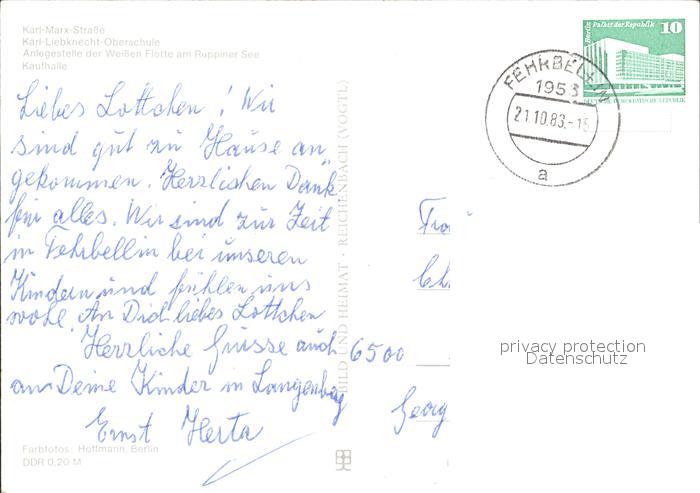 Karl-Marx-Straße
Karl-Liebknecht-Oberschule
Anlegestelle der Weißen Flotte am Ruppiner See
Kaufhalle
Liebes Lottchen! Wir
sind gut zu Hause an
gekommen. Herzlichen Dank
für alles. Wir sind zur Zeit
in Fehrbellin bei unseren
Kindern und fühlen uns
wohl. An Dich liebes Lottchen
Herzliche Grüsse auch
an Deine Kinder in Langenberg
Ernst Herta
Farbfotos: Hoffmann, Berlin
DDR 0,20 M
BILD UND HEIMAT · REICHENBACH (VOGTL)
Berlin Palast der Republik 10
DEUTSCHE DEMOKRATISCHE REPUBLIK
FEHRBELLIN
1953
21.10.83.-15
a
Frau
6500
Georg
privacy protection
Datenschutz